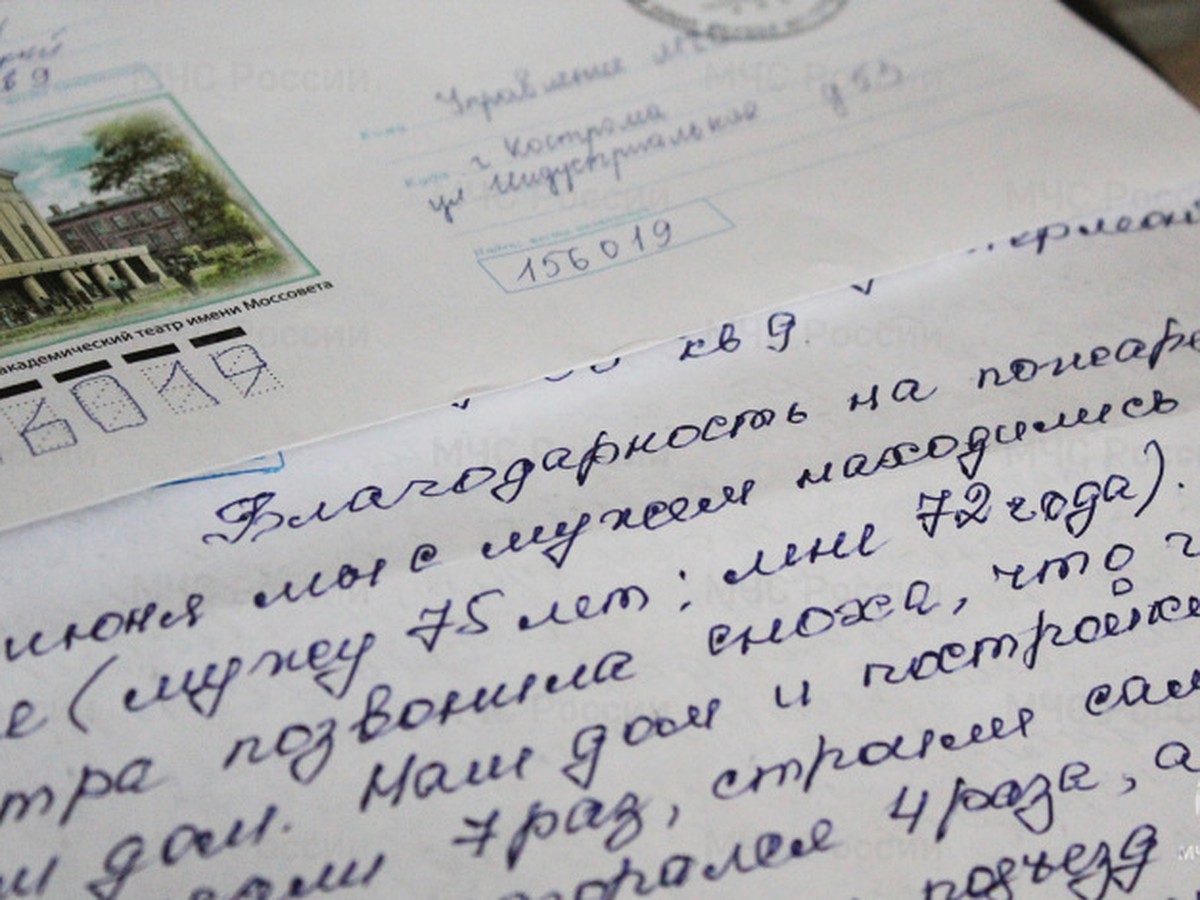 кв 9
Управление МЧС
г Кострома
ул Индустриальная д 53
156019
академический театр имени Моссовета
6019
кв 9.
Благодарность на пожаре
июня мы с мужем находились
(мужу 75 лет; мне 72 года).
позвонила сноха, что
дом. Наш дом и постройке
7 раз, строили сам
4 раза, а
подъезд
МЧС России